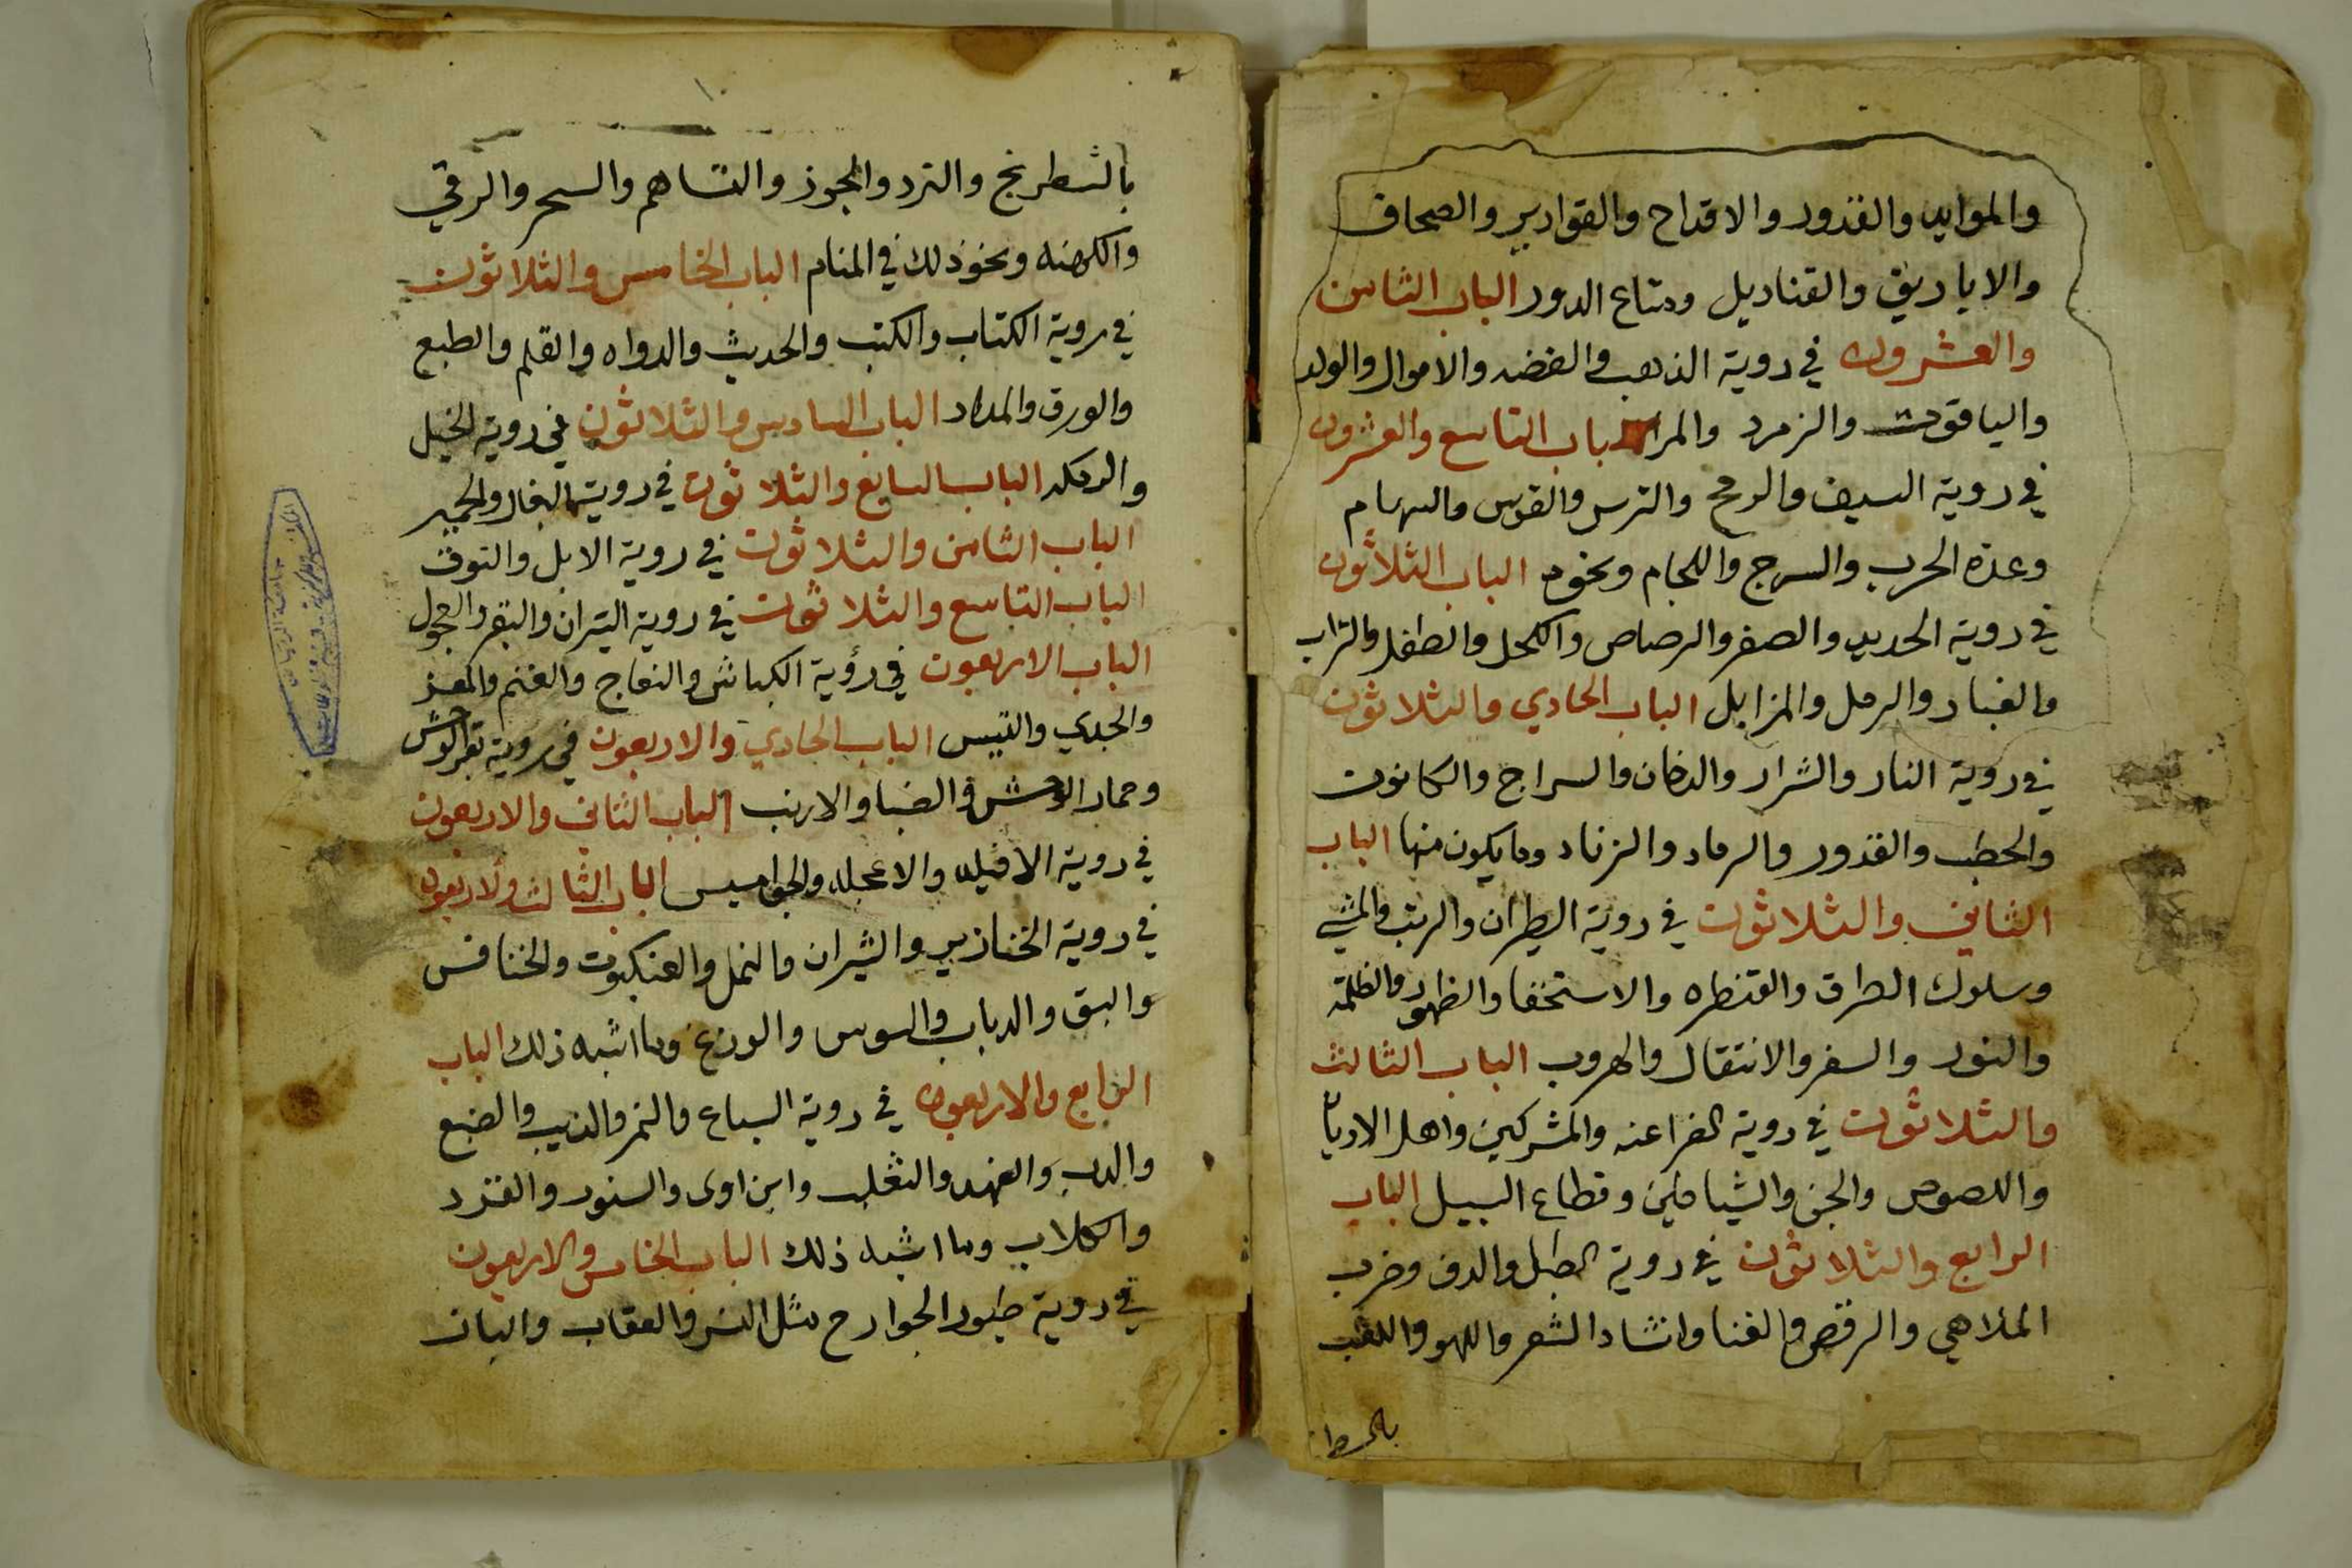 والموايد والقدور والاقداح والقوارير والصحاف
والاباريق والقناديل ومتاع الدور الباب الثامن
والعشرون في روية الذهب والفضه والاموال والولد
والياقوت والزمرد باب التاسع والعشرون
في روية السيف والرمح والترس والقوس والسهام
وعدة الحرب والسرج واللجام ونحوه الباب الثلاثون
في روية الحديد والصفر والرصاص والكحل والطفل والتراب
والغبار والرمل والمزابل الباب الحادي والثلاثون
في روية النار والشرار والدخان والسراج والكانون
والحطب والقدور والرماد والزناد وما يكون منها الباب
الثاني والثلاثون في روية الطيران والوثب والمشي
وسلوك الطراق والقنطره والاستخفا والظهور والظلمة
والنور والسفر والانتقال والهروب الباب الثالث
والثلاثون في روية الفراعنه والمشركين واهل الاديان
واللصوص والجن والشياطين وقطاع السبيل الباب
الرابع والثلاثون في روية الطبل والدف وضرب
الملاهي والرقص والغنا وانشاد الشعر واللهو واللعب
بالشطرنج والنرد والجوز والسحر والرقي
والكهنه ونحو ذلك في المنام الباب الخامس والثلاثون
في روية الكتاب والكتب والحديث والدواه والقلم والطبع
والورق والمداد الباب السادس والثلاثون في روية الخيل
والرمكه الباب السابع والثلاثون في روية البغال والحمير
الباب الثامن والثلاثون في روية الابل والنوق
الباب التاسع والثلاثون في روية التيران والبقر والعجول
الباب الاربعون في رؤية الكباش والنعاج والغنم والمعز
والجدي والتيس الباب الحادي والاربعون في روية بقر الوحش
وحمار الوحش والضبا والارنب الباب الثاني والاربعون
في روية الافيله والاعجله والجواميس الباب الثالث ولاربعون
في روية الخنازير والشيران والنمل والعنكبوت والخنافس
والبق والدباب والسوس والوزغ وما اشبه ذلك الباب
الرابع والاربعون في روية السباع والنمر والذيب والضبع
والدب والفهد والثعلب وابن اوى والسنور والقرد
والكلاب وما اشبه ذلك الباب الخامس والاربعون
في روية طيور الجوارح مثل النسر والعقاب والباز